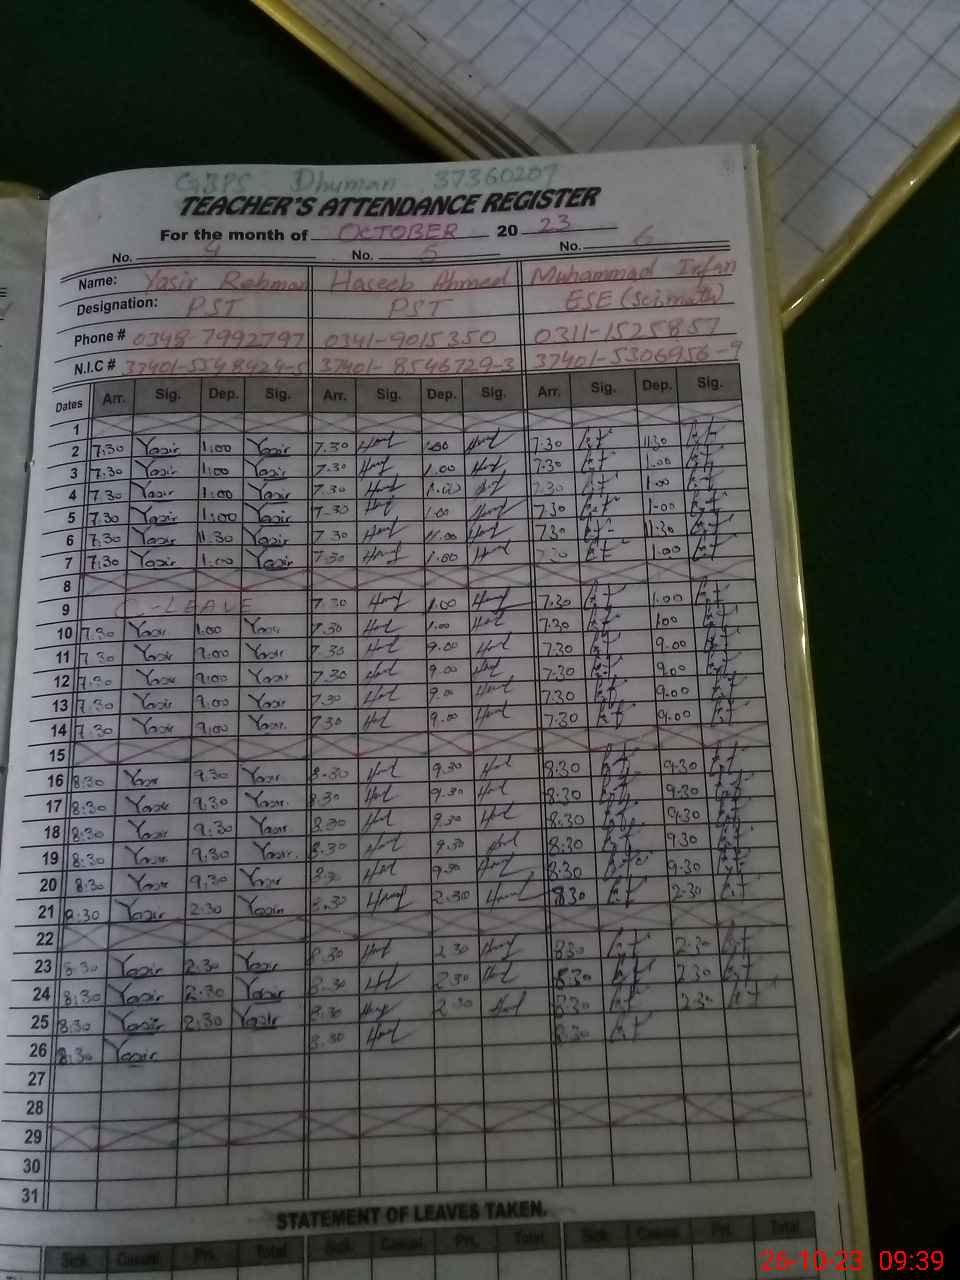 GBPS Dhuman 37360207
TEACHER'S ATTENDANCE REGISTER
For the month of OCTOBER 20 23
No. 4 No. 5 No. 6
Name: Yasir Rehman Haseeb Ahmed Muhammad Irfan
Designation: PST PST ESE (Sci.math)
Phone # 0348-7992797 0341-9015350 0311-1525857
N.I.C # 37401-5548424-5 37401-8546729-3 37401-5306956-9
Dates Arr. Sig. Dep. Sig. Arr. Sig. Dep. Sig. Arr. Sig. Dep. Sig.
1
2 7:30 Yasir 1:00 Yasir 7.30 1.00 7.30 11.30
3 7:30 Yasir 1:00 Yasir 7.30 1.00 7.30 1.00
4 7:30 Yasir 1:00 Yasir 7.30 1.00 7.30 1.00
5 7:30 Yasir 1:00 Yasir 7.30 1.00 7.30 1.00
6 7:30 Yasir 11.30 Yasir 7.30 11.00 7.30 11.30
7 7:30 Yasir 1:00 Yasir 7.30 1.00 7.30 1.00
8
9 C-LEAVE 7.30 1.00 7.30 1.00
10 7:30 Yasir 1.00 Yasir 7.30 1.00 7.30 1.00
11 7:30 Yasir 9:00 Yasir 7.30 9.00 7.30 9.00
12 7:30 Yasir 9:00 Yasir 7.30 9.00 7.30 9.00
13 7:30 Yasir 9:00 Yasir 7.30 9.00 7.30 9.00
14 7:30 Yasir 9:00 Yasir 7.30 9.00 7.30 9.00
15
16 8:30 Yasir 9:30 Yasir 8.30 9.30 8.30 9.30
17 8:30 Yasir 9:30 Yasir 8.30 9.30 8.30 9.30
18 8:30 Yasir 9:30 Yasir 8.30 9.30 8.30 9.30
19 8:30 Yasir 9:30 Yasir 8.30 9.30 8.30 9.30
20 8:30 Yasir 9:30 Yasir 8.30 9.30 8.30 9.30
21 8:30 Yasir 2:30 Yasir 8.30 2.30 8.30 2.30
22
23 8:30 Yasir 2:30 Yasir 8.30 2.30 8.30 2.30
24 8:30 Yasir 2:30 Yasir 8.30 2.30 8.30 2.30
25 8:30 Yasir 2:30 Yasir 8.30 2.30 8.30 2.30
26 8:30 Yasir 8.30 8.30
27
28
29
30
31
STATEMENT OF LEAVES TAKEN.
Sick. Casual. Pri. Total Sick. Casual. Pri. Total Sick. Casual. Pri. Total
26-10-23 09:39